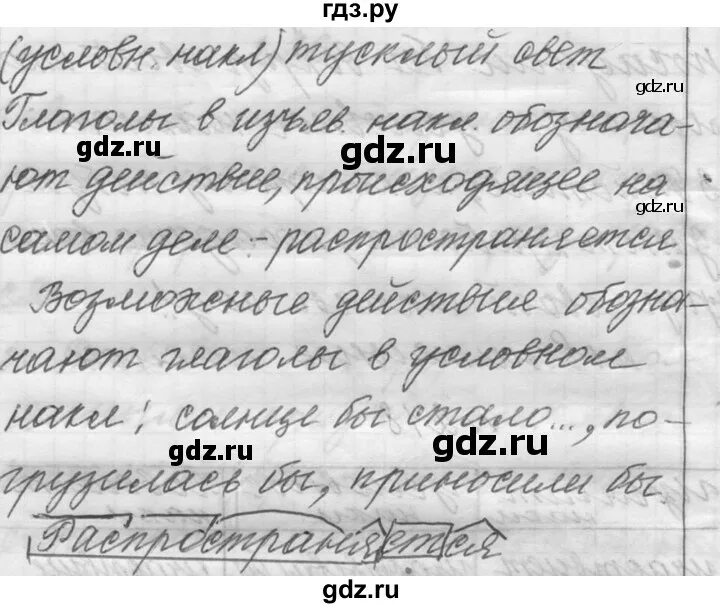 гдз.ру
(условн. накл) тусклый свет
gdz.ru
Глаголы в изъяв. накл. обознача-
gdz.ru
gdz.ru
ют действие, происходящее на
gdz.ru
самом деле:- распространяется
Возможные действия обозна-
чают глаголы в условном
накл: солнце бы стало..., по-
gdz.ru
gdz.ru
грузилась бы, приносили бы.
Распространяется
gdz.ru